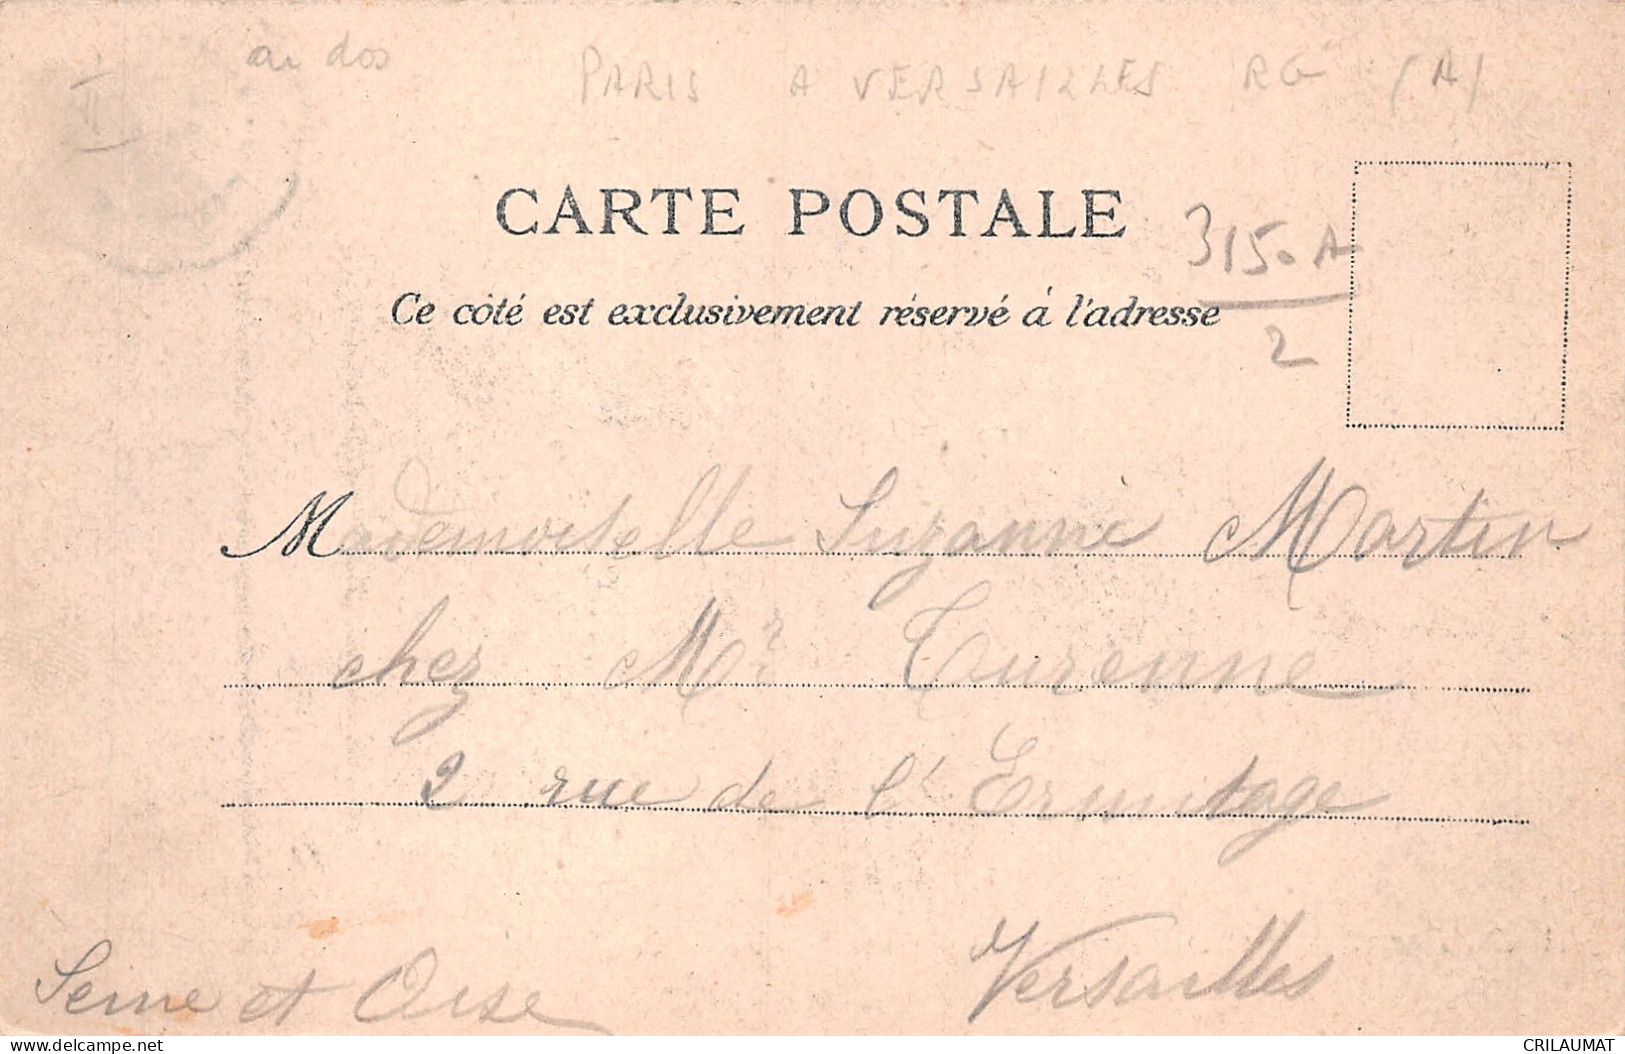 au dos
PARIS A VERSAILLES RG (A)
CARTE POSTALE
3150 A
2
Ce côté est exclusivement réservé à l'adresse
Mademoiselle Suzanne Martin
chez Mr Turenne
2 rue de l'Ermitage
Versailles
Seine et Oise
delcampe.net
CRILAUMAT